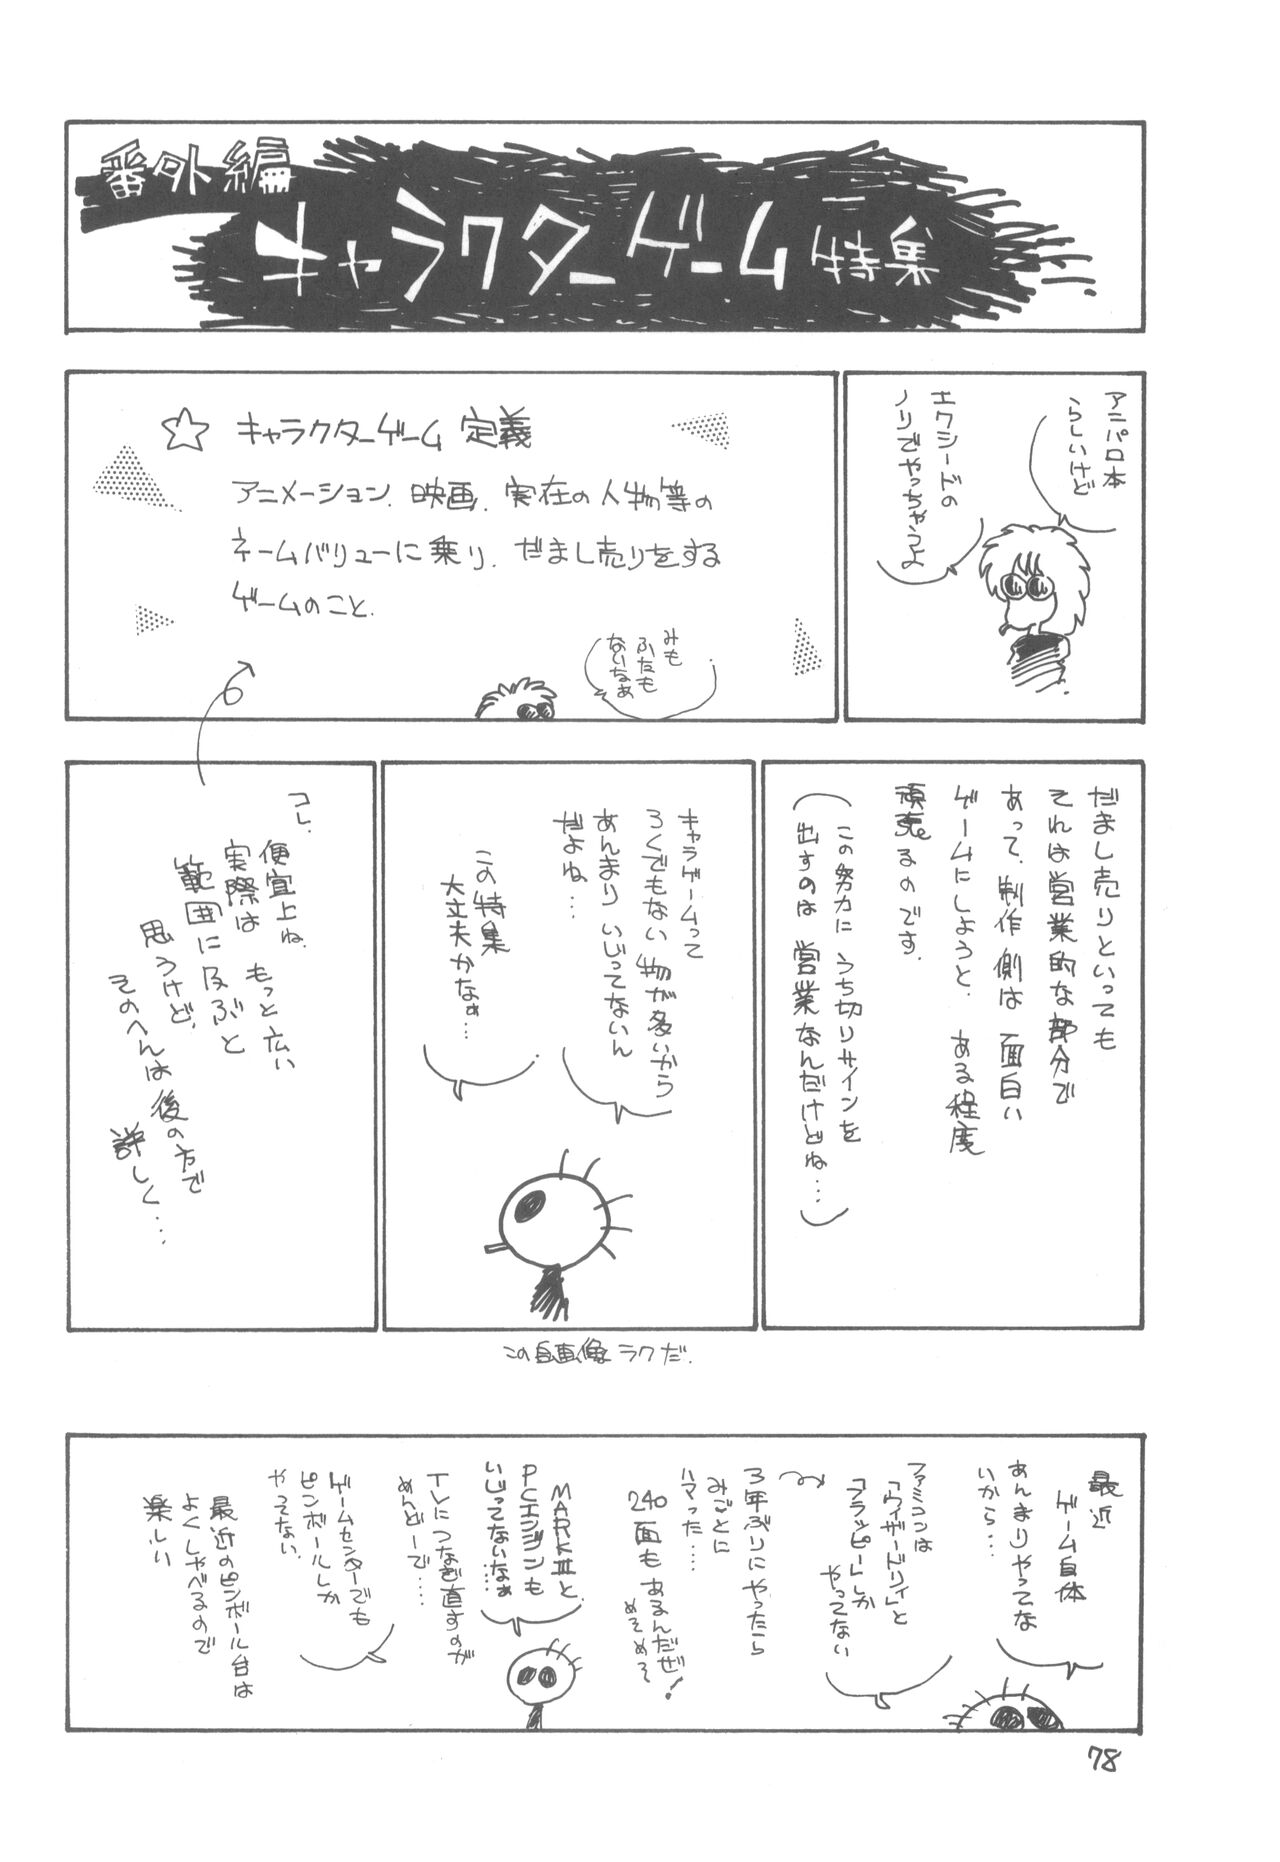 番外編
キャラクターゲーム特集
アニパロ本
らしいけど
エクシードの
ノリでやっちゃうよ
☆ キャラクターゲーム 定義
アニメーション、映画、実在の人物等の
ネームバリューに乗り、だまし売りをする
ゲームのこと.
みも
ふたも
ないなぁ
だまし売りといっても
それは営業的な部分で
あって、制作側は面白い
ゲームにしようと、ある程度
頑張るのです.
(この努力にうち切りサインを
出すのは営業なんだけどね…)
キャラゲームって
ろくでもない物が多いから
あんまりいじってないん
だよね…
この特集
大丈夫かなぁ…
コレ、
便宜上ね、
実際はもっと広い
範囲に及ぶと
思うけど、
そのへんは後の方で
詳しく…
この自画像ラクだ.
最近
ゲーム自体
あんまりやってな
いから…
ファミコンは
「ウィザードリィ」と
「フラッピー」しか
やってない
3年ぶりにやったら
みごとに
ハマった…
240面もあるんだぜ!
めそめそ
MARKⅢと、
PCエンジンも
いじってないなぁ…
TVにつなぎ直すのが
めんどーで…
ゲームセンターでも
ピンボールしか
やってない.
最近のピンボール台は
よくしゃべるので
楽しい
78